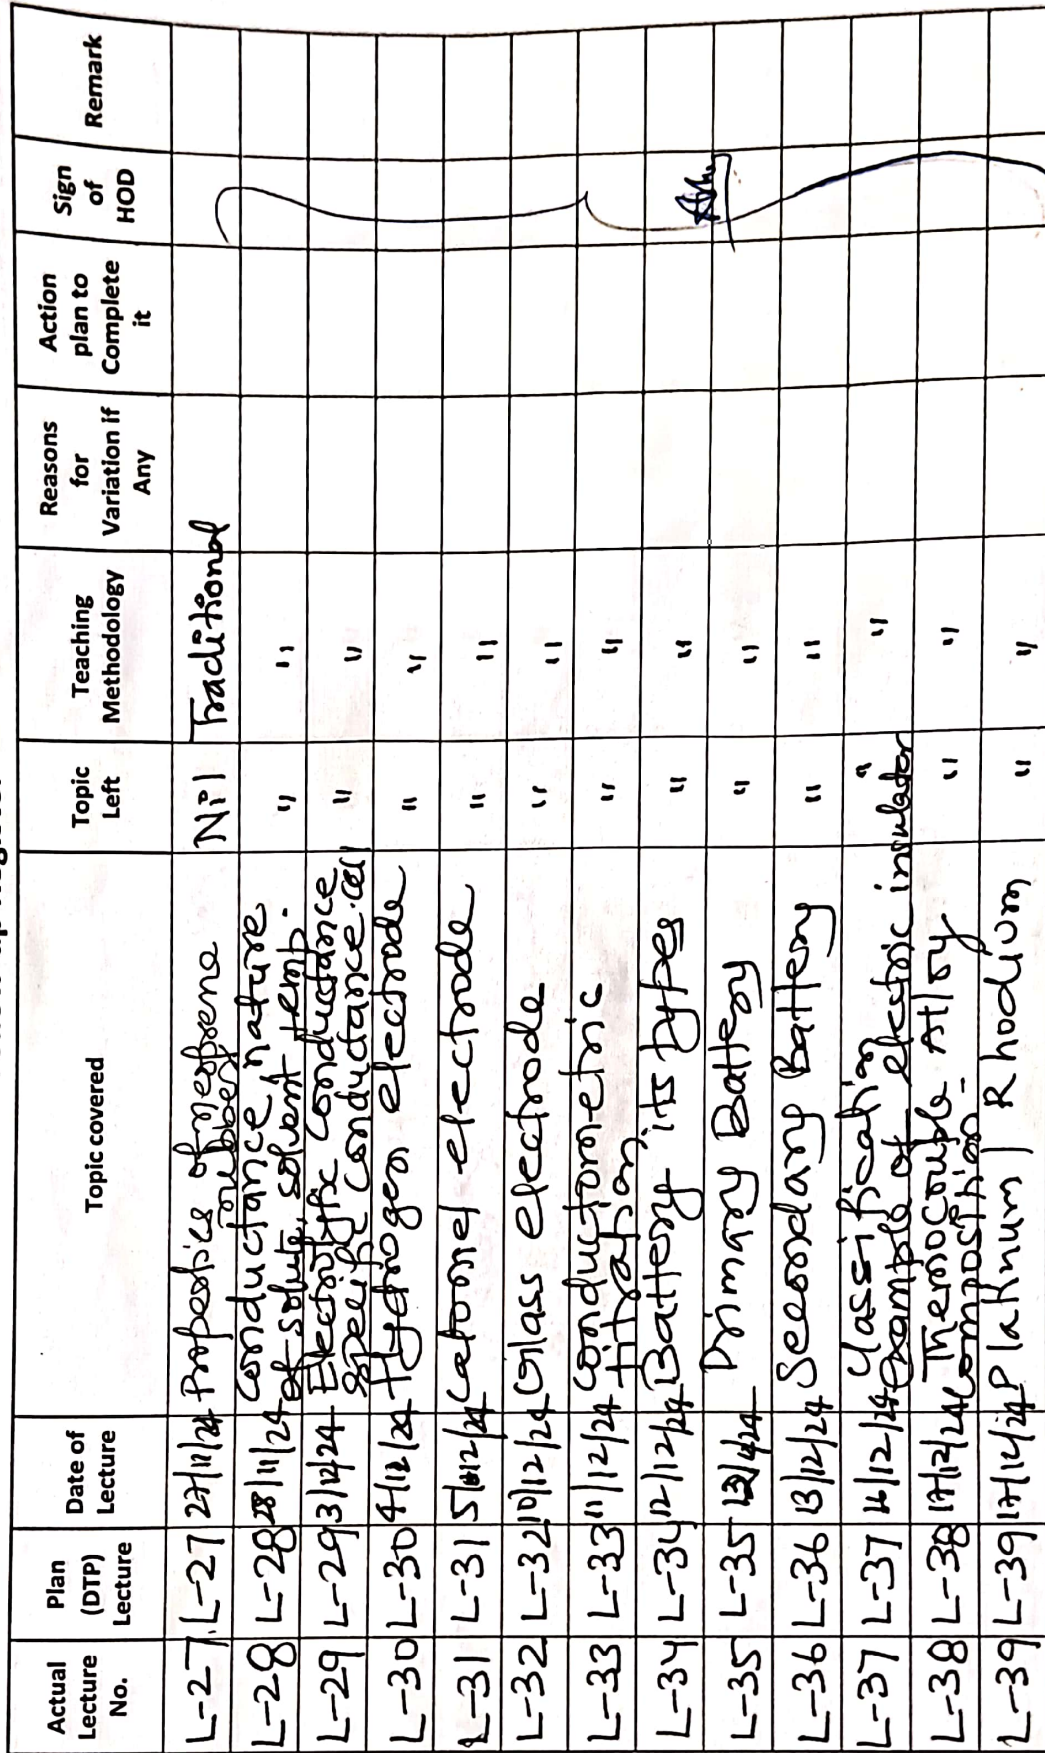 Actual Lecture No. | Plan (DTP) Lecture | Date of Lecture | Topic covered | Topic Left | Teaching Methodology | Reasons for Variation if Any | Action plan to Complete it | Sign of HOD | Remark
L-27 | L-27 | 27/11/24 | Properties of neoprene rubber | Nil | Traditional
L-28 | L-28 | 28/11/24 | Conductance, nature of solute, solvent temp. | " | "
L-29 | L-29 | 3/12/24 | Electrolytic conductance specific conductance. cell | " | "
L-30 | L-30 | 4/12/24 | Hydrogen electrode | " | "
L-31 | L-31 | 5/12/24 | Calomel electrode | " | "
L-32 | L-32 | 10/12/24 | Glass electrode | " | "
L-33 | L-33 | 11/12/24 | Conductometric titration | " | "
L-34 | L-34 | 12/12/24 | Battery, its types | " | "
L-35 | L-35 | Primary Battery | " | "
L-36 | L-36 | 13/12/24 | Secondary Battery | " | "
L-37 | L-37 | 16/12/24 | Classification example of electric insulator | " | "
L-38 | L-38 | 17/12/24 | Thermocouple Alloy Composition | " | "
L-39 | L-39 | 17/12/24 | Platinum | Rhodium | " | "